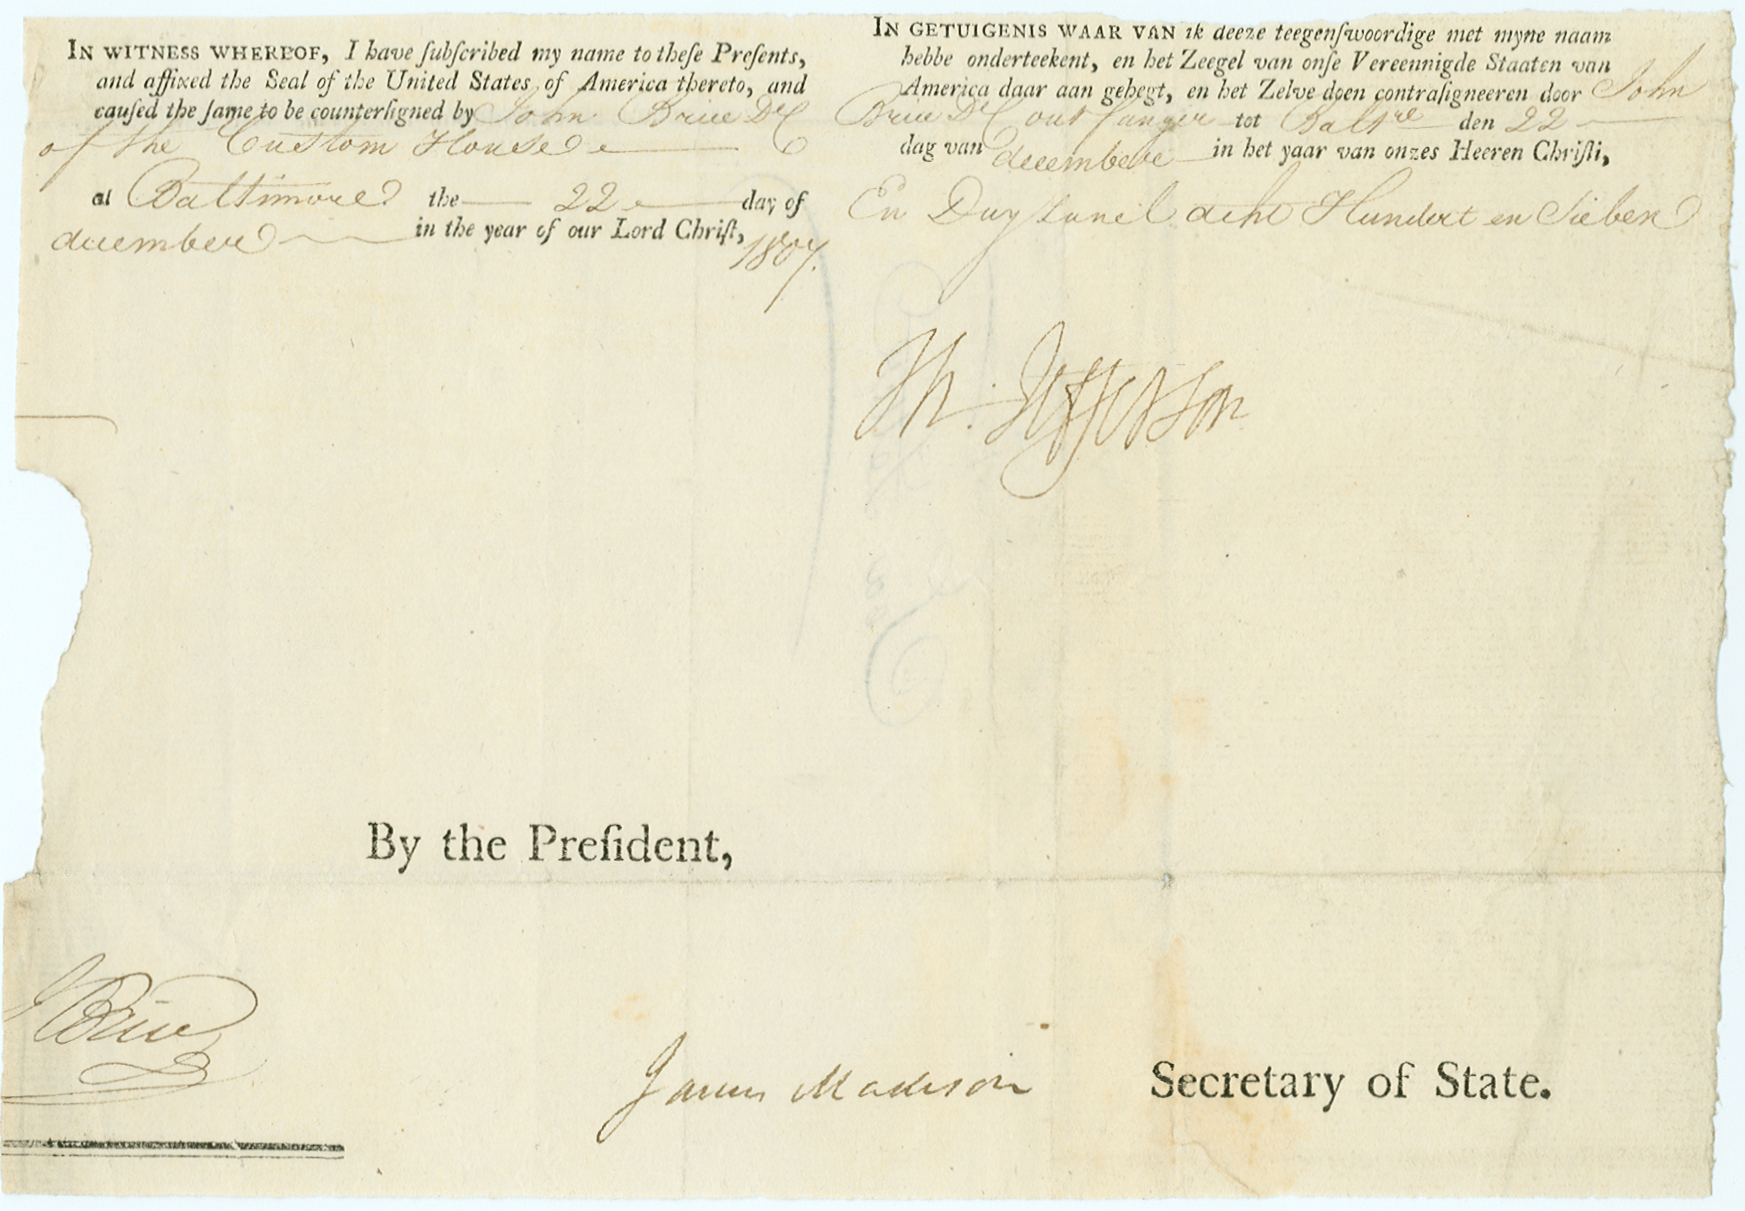 IN WITNESS WHEREOF, I have ſubſcribed my name to theſe Preſents,
and affixed the Seal of the United States of America thereto, and
cauſed the ſame to be counterſigned by John Brice DC
of the Custom House
at Baltimore the 22 day of
december in the year of our Lord Chriſt,
1807.
IN GETUIGENIS WAAR VAN ik deeze teegenſwoordige met myne naam
hebbe onderteekent, en het Zeegel van onſe Vereennigde Staaten van
America daar aan gehegt, en het Zelve doen contraſigneeren door John
Brice DC tot Baltre den 22
dag van decembere in het yaar van onzes Heeren Chriſti,
En acht Hundert en Sieben
Th. Jefferson
By the Preſident,
JBrice
James Madison Secretary of State.